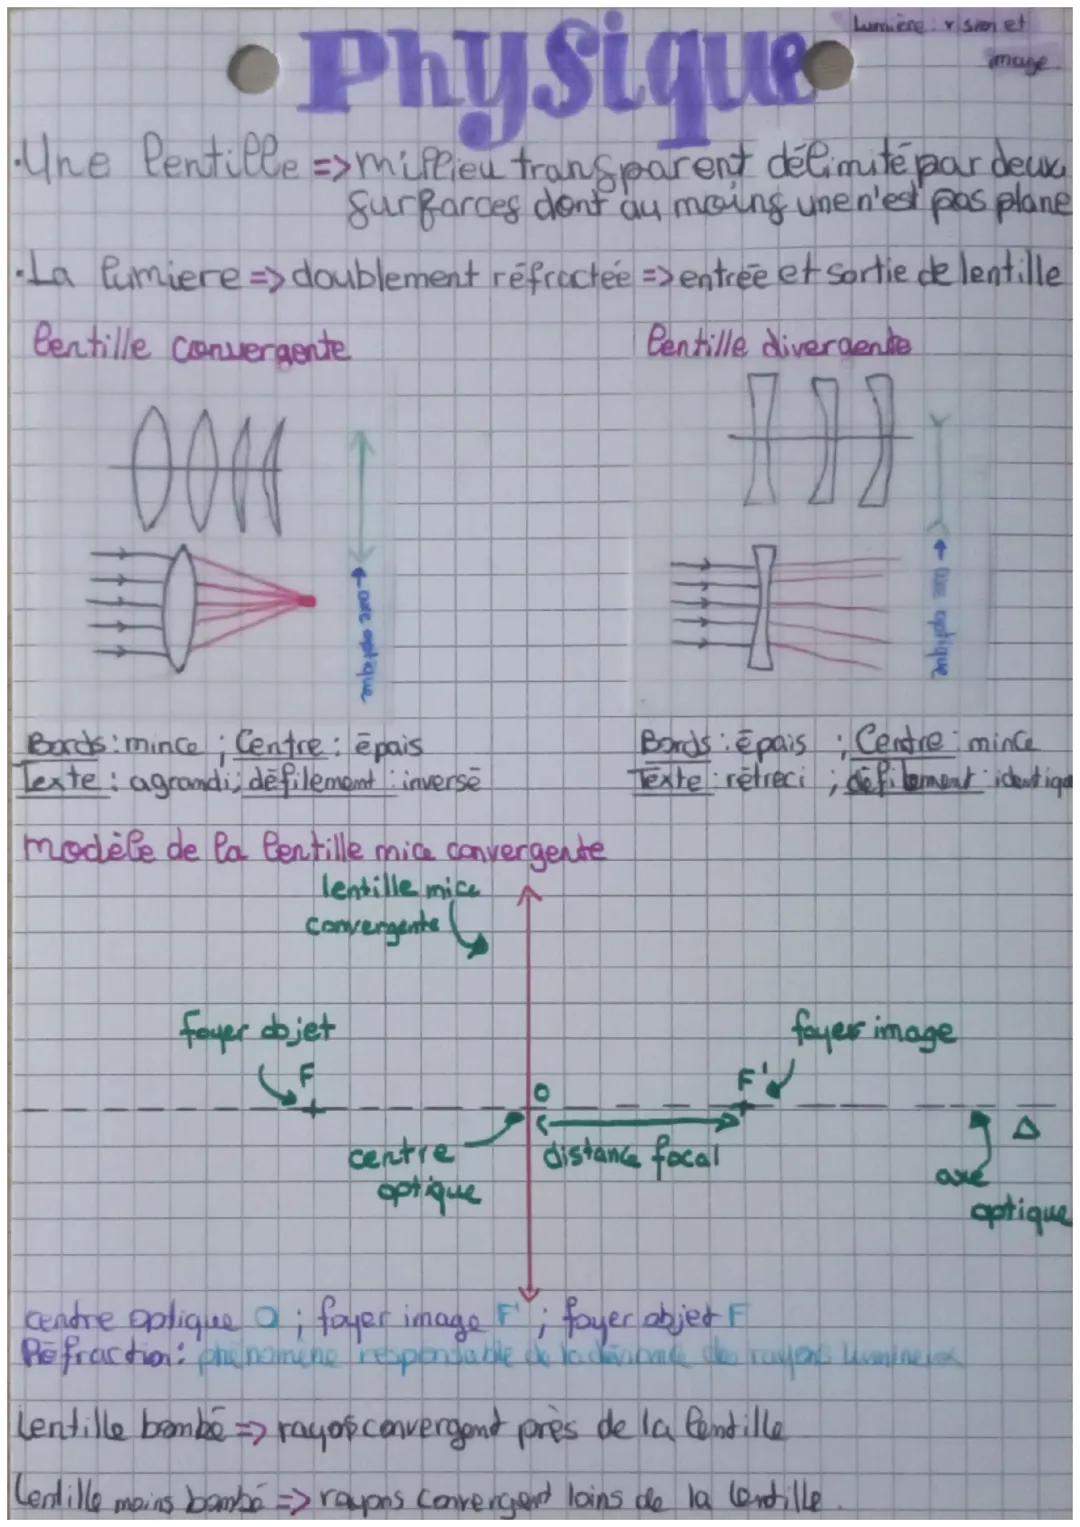 Physique
Lumière : vision et
image.
• Une lentille => millieu transparent délimité par deux
surfarces dont au moins une n'est pas plane
• La lumiere => doublement réfractée => entrée et sortie de lentille
lentille convergente
lentille divergente
← axe optique
← axe optique
Bords : mince ; Centre : épais
Texte : agrandi ; défilement : inversé
Bords : épais ; Centre : mince
Texte : rétreci ; défilement : identique
modèle de la lentille mice convergente
lentille mice
convergente
foyer objet
foyer image
F
F'
O
centre
optique
distance focal
Δ
axe
optique
centre optique O ; foyer image F' ; foyer objet F
Réfraction : phénomène responsable de la des rayons lumineux
lentille bombé => rayos convergent près de la lentille
lentille moins bombé => rayons convergent loins de la lentille.